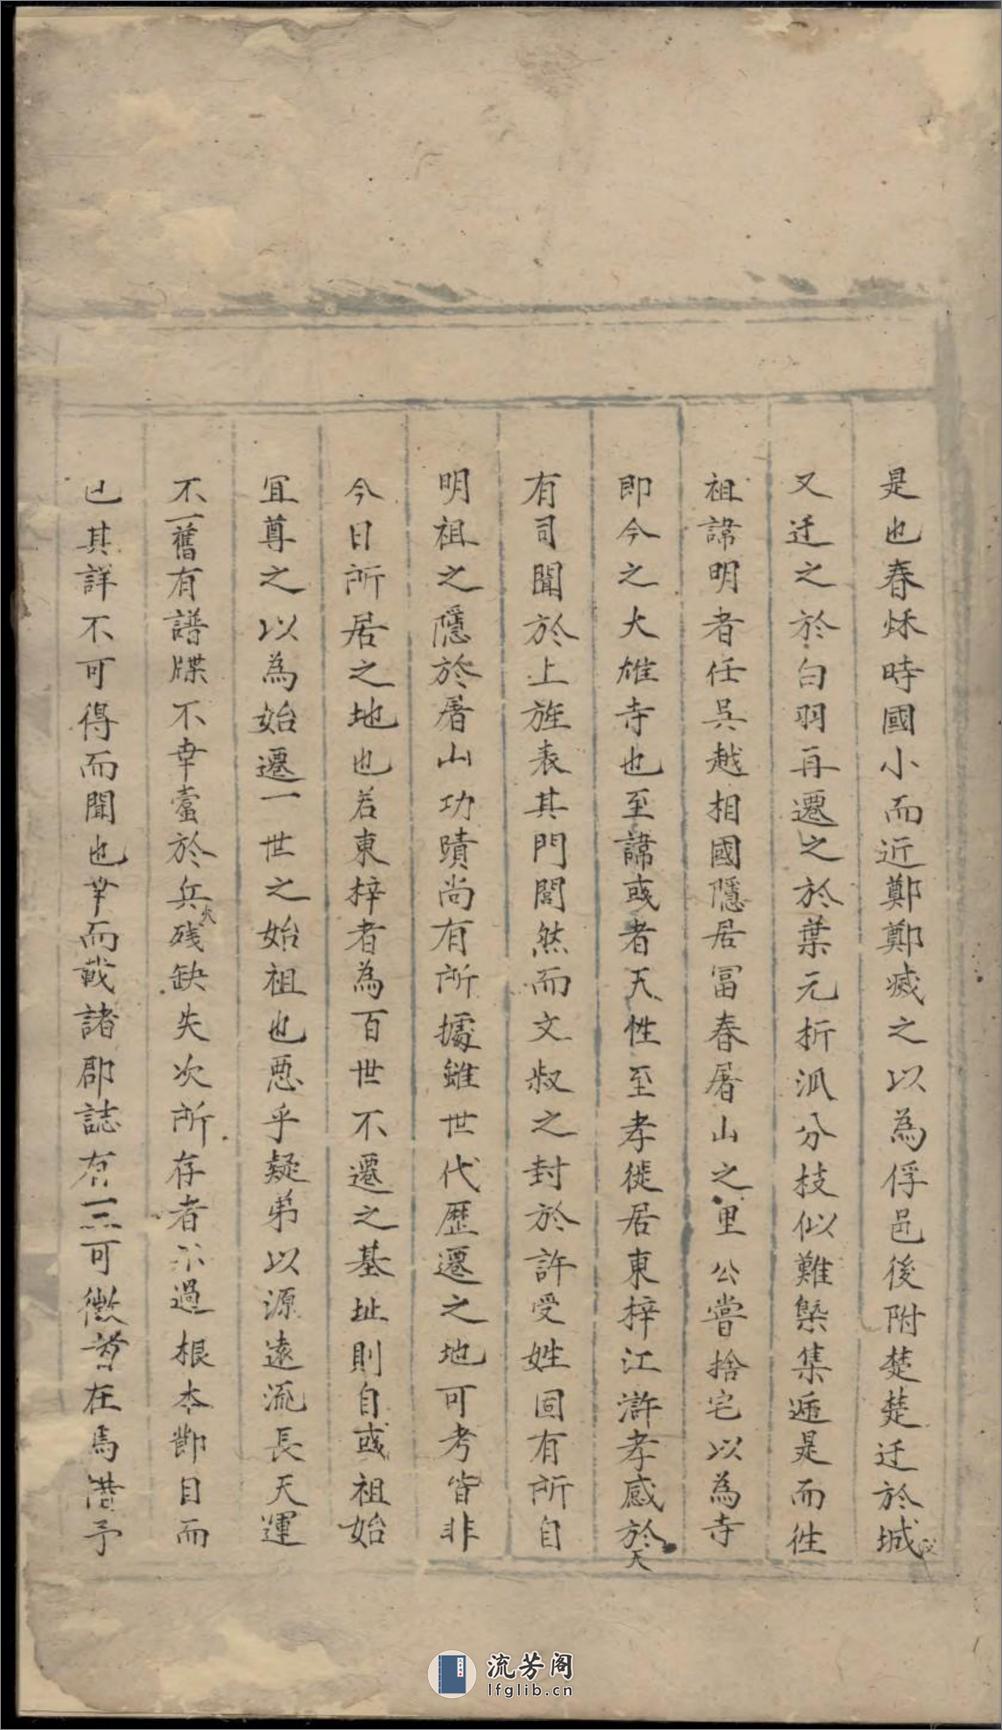 是也春秌時國小而近鄭鄭慽之以為俘邑後附楚楚迁於城父
又迁之於白羽再遷之於葉元折泒分枝似難槩集遁是而徃
祖諱明者任吳越相國隱居冨春屠山之里公嘗捨宅以為寺
即今之大雄寺也至諱彧者天性至孝徙居東梓江滸孝感於天
有司聞於上旌表其門閭然而文叔之封於許受姓固有所自
明祖之隱於屠山功蹟尚有所據雖世代歷遷之地可考皆非
今日所居之地也若東梓者為百世不遷之基址則自彧祖始
冝尊之以為始遷一世之始祖也惡乎疑弟以源遠流長天運
不一舊有譜牒不幸蠹於兵火残缺失次所存者不過根本節目而
已其詳不可得而聞也幸而載諸郡誌有可徵在馬予
流芳阁
lfglib.cn